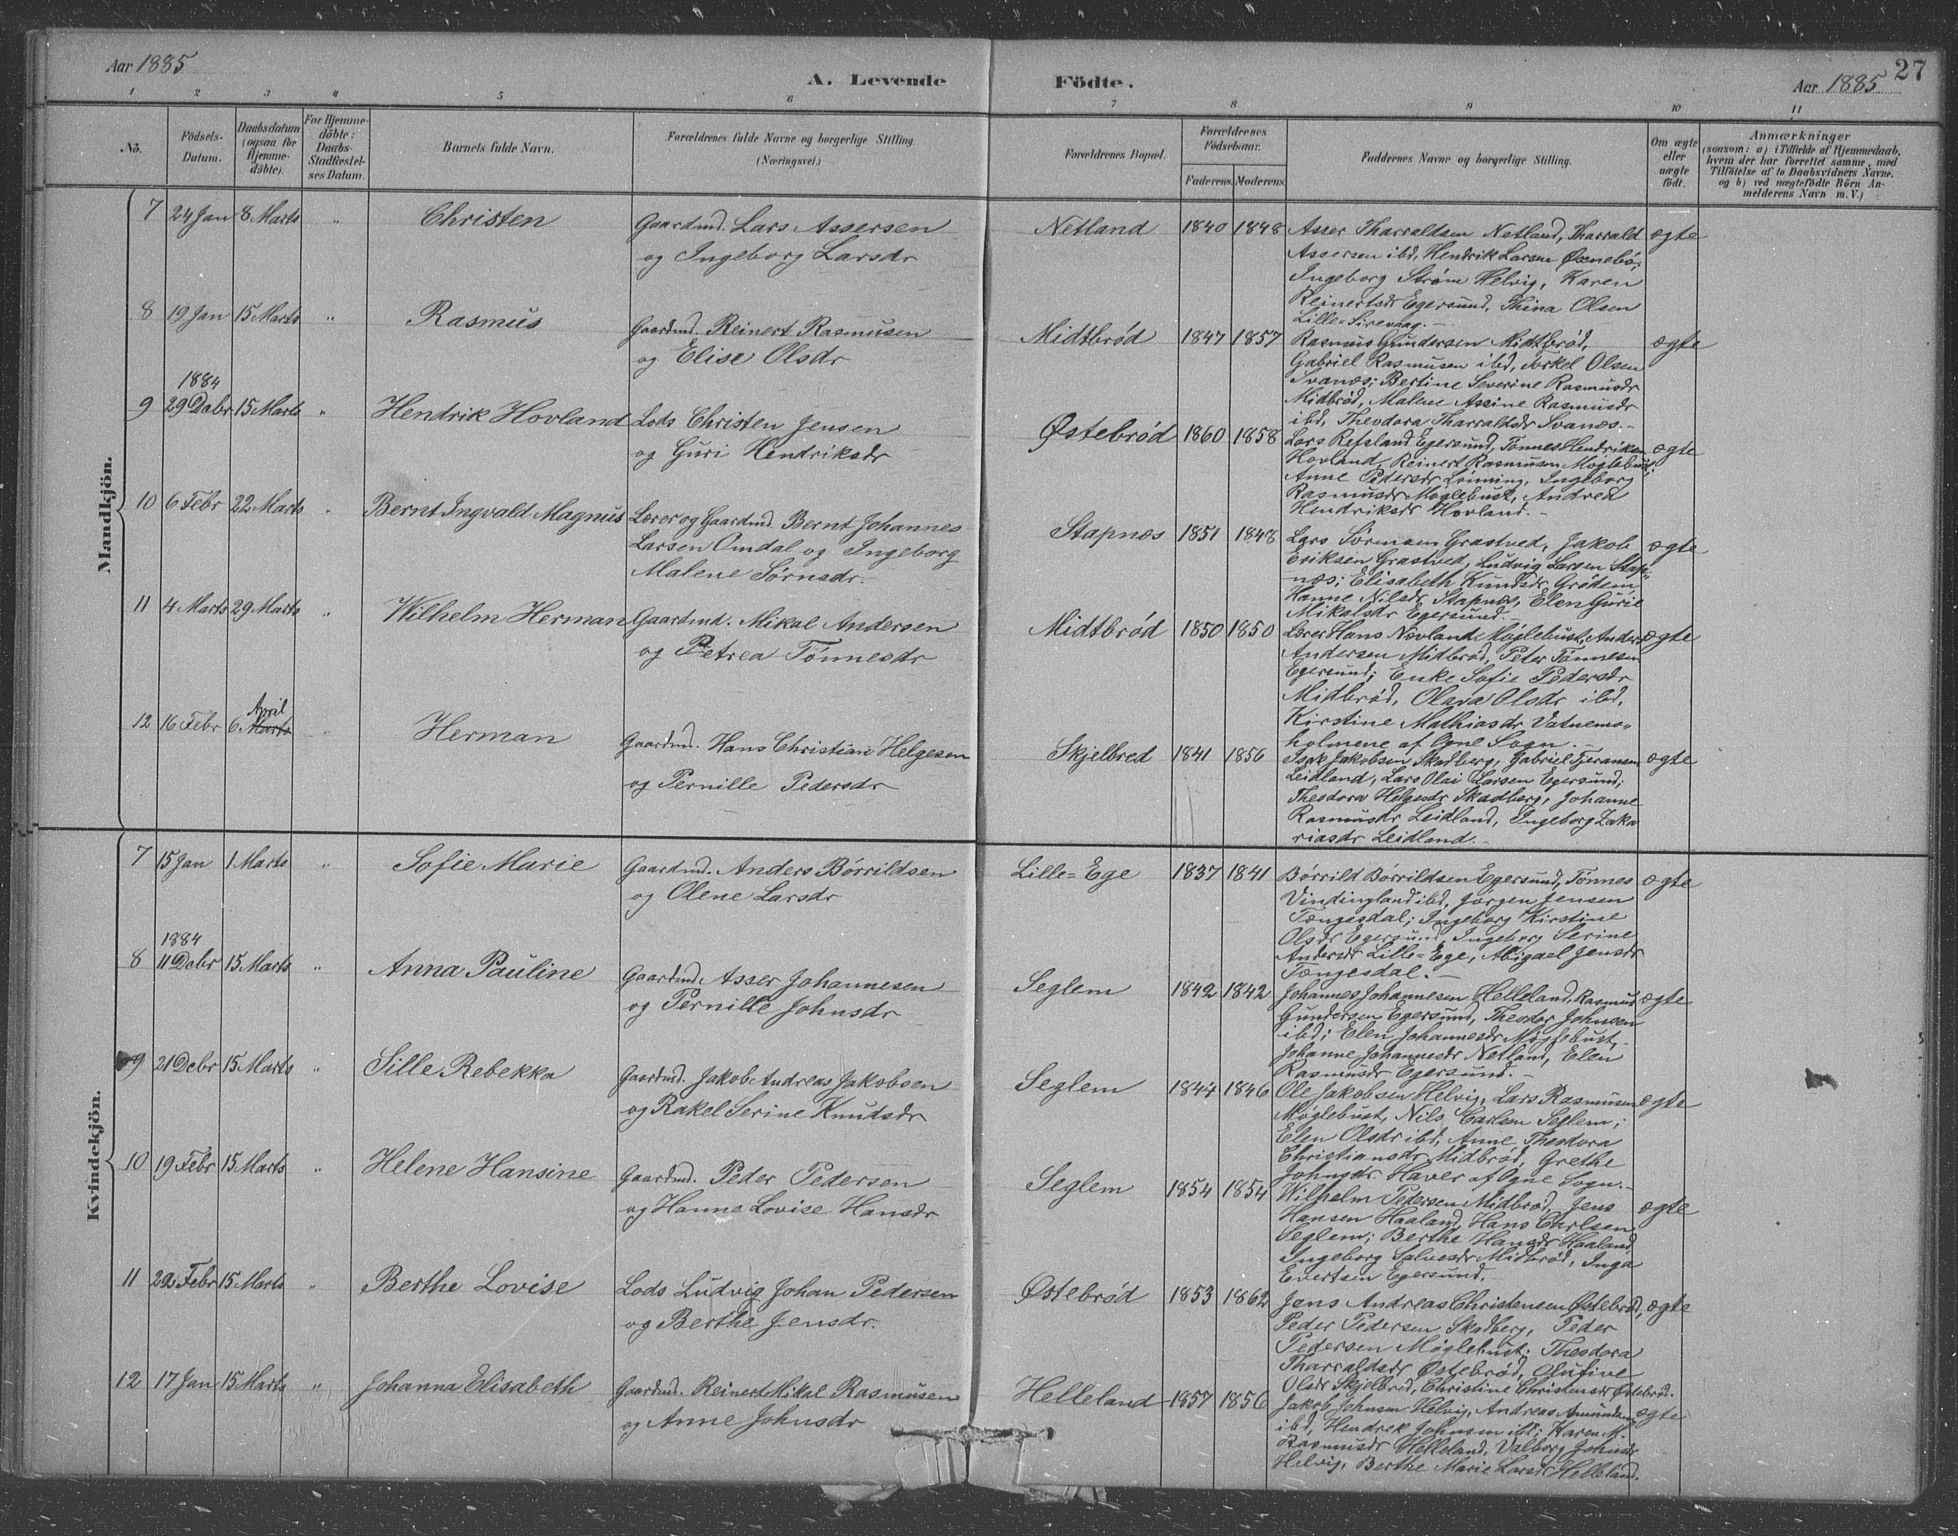 Aar 1885
A. Levende Födte.
Aar 1885
27
1 2 3 4 5 6 7 8 9 10 11
No.
Födsels-Datum.
Daabsdatum (ogsaa for Hjemme-döbte).
For Hjemme-döbte: Daabs-Stadfæstel-ses Datum.
Barnets fulde Navn.
Forældrenes fulde Navne og borgerlige Stilling. (Næringsvei.)
Forældrenes Bopæl.
Forældrenes Födselsaar.
Faderens. Moderens.
Faddernes Navne og borgerlige Stilling.
Om ægte eller uægte födt.
Anmærkninger
(saasom: a) i Tilfælde af Hjemmedaab,
hvem der har forrettet samme, med
Tilföielse af to Daabsvidners Navne.
og b) ved uægtefödte Börn An-
melderens Navn m. V.)
Mandkjön.
7 24 Jan 8 Marts " Christen
Gaardmd. Lars Assersen
og Ingeborg Larsdr
Netland 1840 1848
Asser Tharraldsen Netland, Tharrald
Assersen ibd, Hendrik Larsen Øxnebø;
Ingeborg Strøm Helvig, Karen
Reinertsdr Egersund, Thina Olsen
Lille-Sirevaag.-
ægte
8 19 Jan 15 Marts " Rasmus
Gaardmd. Reinert Rasmusen
og Elise Olsdr
Midtbrød 1847 1857
Rasmus Gundersen Midtbrød,
Gabriel Rasmusen ibd, Torkel Olsen
Svanæs; Bertine Severine Rasmusdr
Midbrød, Malene Assine Rasmusdr
ibd, Theodora Tharraldsdr Svanæs.-
ægte
9 1884 29 Dcbr 15 Marts " Hendrik Hovland
Lods Christen Jensen
og Guri Hendriksdr
Østebrød 1860 1858
Lars Refsland Egersund, Tønnes Hendriksen
Hovland, Reinert Rasmusen Møglebust;
Anne Pedersdr Lønning, Ingeborg
Rasmusdr Møglebust, Andrea
Hendriksdr Hovland.-
ægte
10 6 Febr 22 Marts " Bernt Ingvald Magnus
Lærer og Gaardmd. Bernt Johannes
Larsen Omdal og Ingeborg
Malene Sørnsdr.
Stapnæs 1851 1848
Lars Sørensen Grastved, Jakob
Eriksen Grastved, Ludvig Larsen Stap-
næs; Elisabeth Knudsdr Grødem,
Hanne Nilsdr Stapnæs, Elen Gurie
Mikalsdr Egersund.-
ægte
11 4 Marts 29 Marts " Wilhelm Herman
Gaardmd. Mikal Andersen
og Petrea Tønnesdr
Midtbrød 1850 1850
Lærer Hans Novland Møglebust, Anders
Andersen Midbrød, Peter Tønnesen
Egersund; Enke Sofie Pedersdr
Midbrød, Olava Olsdr ibd,
Kirstine Mathiasdr Vatnemo-
holmene af Ogne Sogn.-
ægte
12 16 Febr 6. Marts April " Herman
Gaardmd. Hans Christian Helgesen
og Pernille Pedersdr
Skjelbred 1841 1856
Isak Jakobsen Skadberg, Gabriel Tjeransen
Leidland, Lars Olai Larsen Egersund;
Theodora Helgesdr Skadberg, Johanne
Rasmusdr Leidland, Ingeborg Zaka
riasdr Leidland.-
ægte
Kvindekjön.
7 15 Jan 1. Marts " Sofie Marie
Gaardmd. Anders Børrildsen
og Olene Larsdr
Lille-Ege 1837 1841
Børrild Børrildsen Egersund, Tønnes
Vindingland ibd, Jørgen Jensen
Tængesdal; Ingeborg Kirstine
Olsdr Egersund, Ingeborg Serine
Andersdr Lille-Ege, Abigael Jensdr
Tængesdal.-
ægte
8 1884 11 Dcbr 15 Marts " Anna Pauline
Gaardmd. Asser Johannesen
og Pernille Johnsdr
Seglem 1842 1842
Johannes Johannesen Helleland, Rasmus
Gundersen Egersund, Theodor Johnsen
ibd; Elen Johannesdr Møglebust,
Johanne Johannesdr Netland, Elen
Rasmusdr Egersund.-
ægte
9 21 Dcbr 15 Marts " Sille Rebekka
Gaardmd. Jakob Andreas Jakobsen
og Rakel Serine Knudsdr
Seglem 1844 1846
Ole Jakobsen Helvig, Lars Rasmusen
Møglebust, Nils Carlsen Seglem;
Elen Olsdr ibd, Anne Theodora
Christiansdr Midbrød, Grethe
Johnsdr Haver af Ogne Sogn.-
ægte
10 19 Febr 15 Marts " Helene Hansine
Gaardmd. Peder Pedersen
og Hanna Lovise Hansdr
Seglem 1854 1854
Wilhelm Pedersen Midbrød, Jens
Hansen Haaland, Hans Carlsen
Seglem; Berthe Hansdr Haaland,
Ingeborg Salvesdr Midbrød, Inga
Evertsen Egersund.
ægte
11 22 Febr 15 Marts " Berthe Lovise
Lods Ludvig Johan Pedersen
og Berthe Jensdr.
Østebrød 1853 1862
Jens Andreas Christensen Østebrød,
Peder Pedersen Skadberg, Peder
Pedersen Møglebust; Theodora
Tharraldsdr Østebrød, Olufine
Olsdr Skjelbred, Christine Christensdr Østebrød.
ægte
12 17 Jan 15 Marts " Johanna Elisabeth
Gaardmd. Reinert Mikal Rasmusen
og Anne Johnsdr
Helleland 1857 1856
Jakob Johnsen Helvig, Andreas Amundsen
ibd, Hendrik Johnsen ibd; Karen M.
Rasmusdr Helleland, Valborg Johnsdr
Helvig, Berthe Marie Larsdr Helleland.
ægte